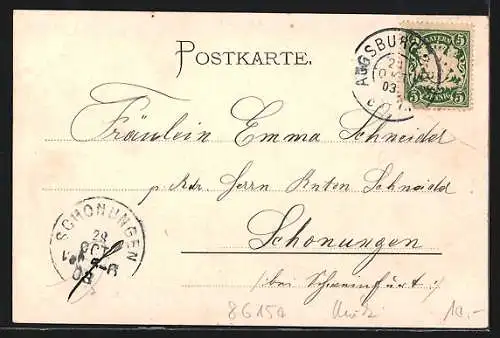 POSTKARTE.
AUGSBURG 2
28
OKT
03
BAYERN
5 5
PFENNIG
5 5
Fräulein Emma Schneider
p. Adr. Herrn Anton Schneider
Schonungen
(bei Schweinfurt.)
SCHONUNGEN
29
OCT
03
8615a
10.-